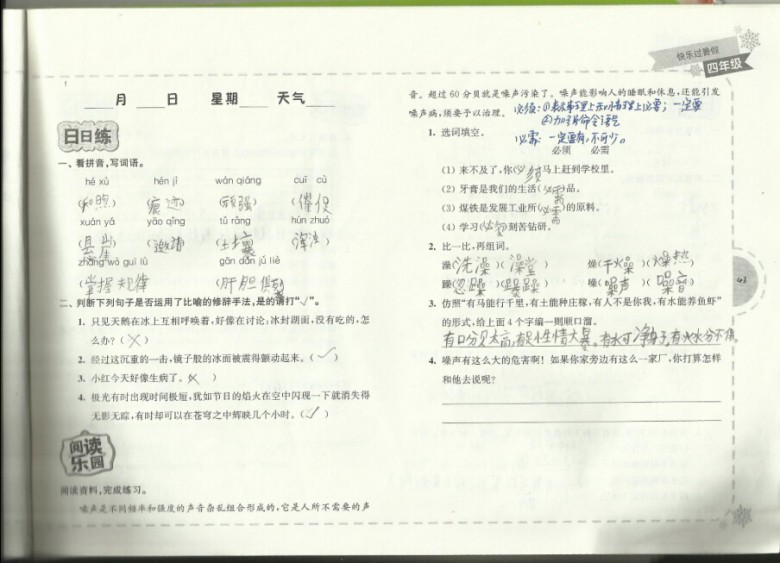 快乐过暑假
四年级
月 日 星期 天气
日日练
一、看拼音,写词语。
hé xù hén jì wán qiáng cuī cù
(和煦) (痕迹) (顽强) (催促)
xuán yá yāo qǐng tǔ rǎng hún zhuó
(悬崖) (邀请) (土壤) (浑浊)
zhǎng wò guī lǜ gān dǎn jù liè
(掌握规律) (肝胆俱裂)
二、判断下列句子是否运用了比喻的修辞手法,是的请打“√”。
1. 只见天鹅在冰上互相呼唤着,好像在讨论:冰封湖面,没有吃的,怎
么办?(×)
2. 经过这沉重的一击,镜子般的冰面被震得颤动起来。(√)
3. 小红今天好像生病了。(×)
4. 极光有时出现时间极短,犹如节日的焰火在空中闪现一下就消失得
无影无踪,有时却可以在苍穹之中辉映几个小时。(√)
阅读乐园
阅读资料,完成练习。
噪声是不同频率和强度的声音杂乱组合形成的,它是人所不需要的声
音。超过60分贝就是噪声污染了。噪声能影响人的睡眠和休息,还能引发
噪声病,须要予以治理。
必须:①表示事理上和情理上必要;一定要
②加强命令语气
1. 选词填空。
必需:一定要有,不可少。
必须 必需
(1) 来不及了,你(必须)马上赶到学校里。
(2) 牙膏是我们的生活(必需)品。
(3) 煤铁是发展工业所(必需)的原料。
(4) 学习(必须)刻苦钻研。
2. 比一比,再组词。
澡(洗澡)(澡堂) 燥(干燥)(燥热)
躁(急躁)(暴躁) 噪(噪声)(噪音)
3. 仿照“有马能行千里,有土能种庄稼,有人不是你我,有水能养鱼虾”
的形式,给上面4个字编一则顺口溜。
4. 噪声有这么大的危害啊!如果你家旁边有这么一家厂,你打算怎样
和他去说呢?
43